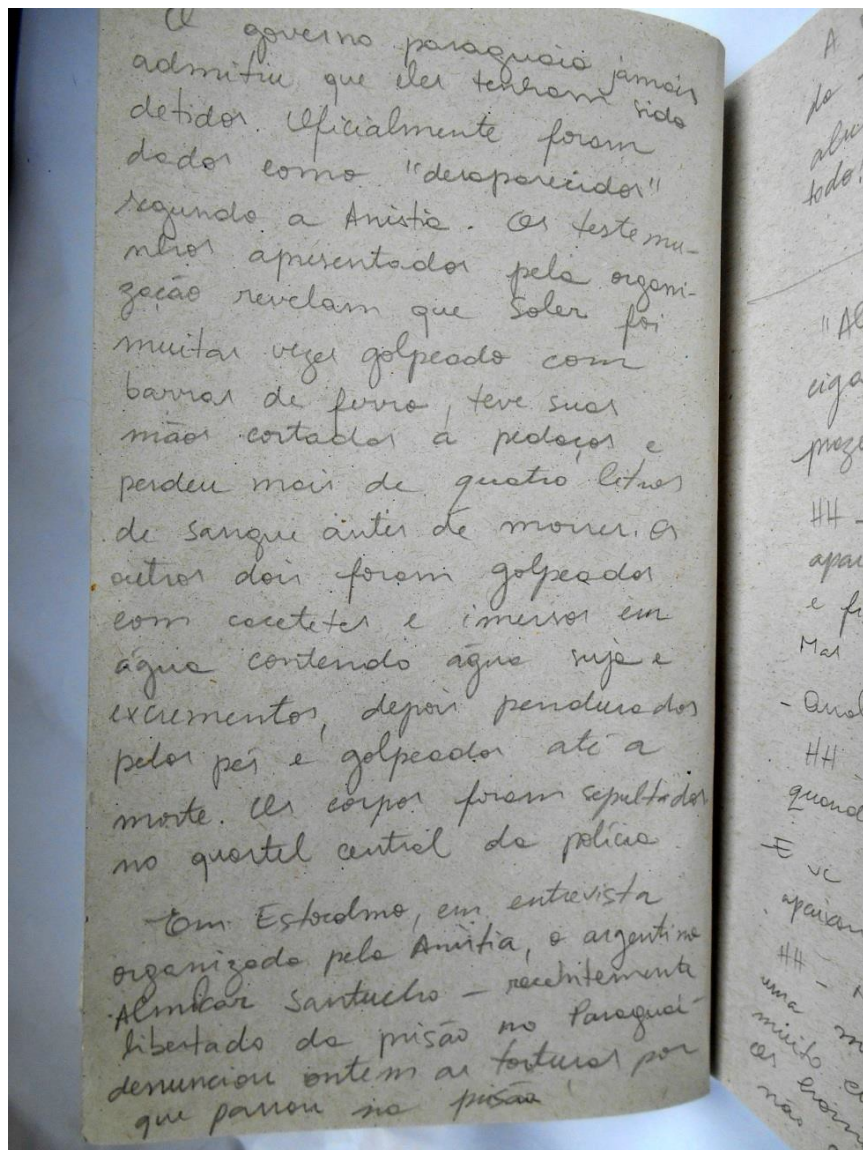 O governo paraguaio jamais
admitiu que eles tenham sido
detidos. Oficialmente foram
dados como "desaparecidos"
segundo a Anistia. Os testemu-
nhos apresentados pela organi-
zação revelam que Soler foi
muitas vezes golpeado com
barras de ferro, teve suas
mãos cortadas a pedaços, e
perdeu mais de quatro litros
de sangue antes de morrer. Os
outros dois foram golpeados
com cacetetes e imersos em
água contendo água suja e
excrementos, depois pendurados
pelos pés e golpeados até a
morte. Os corpos foram sepultados
no quartel central da polícia
Em Estocolmo, em entrevista
organizada pela Anistia, o argentino
Almicar Santucho - recehitemente
libertado da prisão no Paraguai -
denunciou ontem as torturas por
que passou na prisão
A
do
todo!
"Al
ciga
praze
HH -
apai
e fi
Mas
- Qual
HH
quand
- E vc
apaixon
HH - N
uma m
muito c
os hom
não